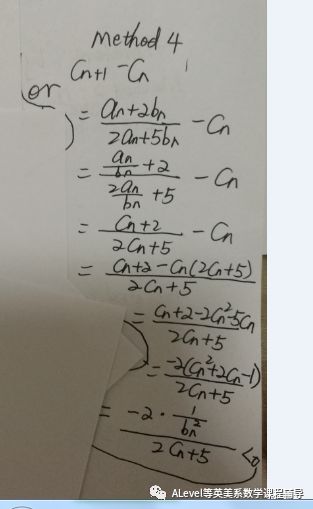 Method 4
or Cn+1 - Cn
= (an+2bn)/(2an+5bn) - Cn
= (an/bn + 2)/(2an/bn + 5) - Cn
= (Cn+2)/(2Cn+5) - Cn
= (Cn+2-Cn(2Cn+5))/(2Cn+5)
= (Cn+2-2Cn²-5Cn)/(2Cn+5)
= (-2(Cn²+2Cn-1))/(2Cn+5)
= (-2 · 1/bn²)/(2Cn+5) <0
ALevel等英美系数学课程辅导